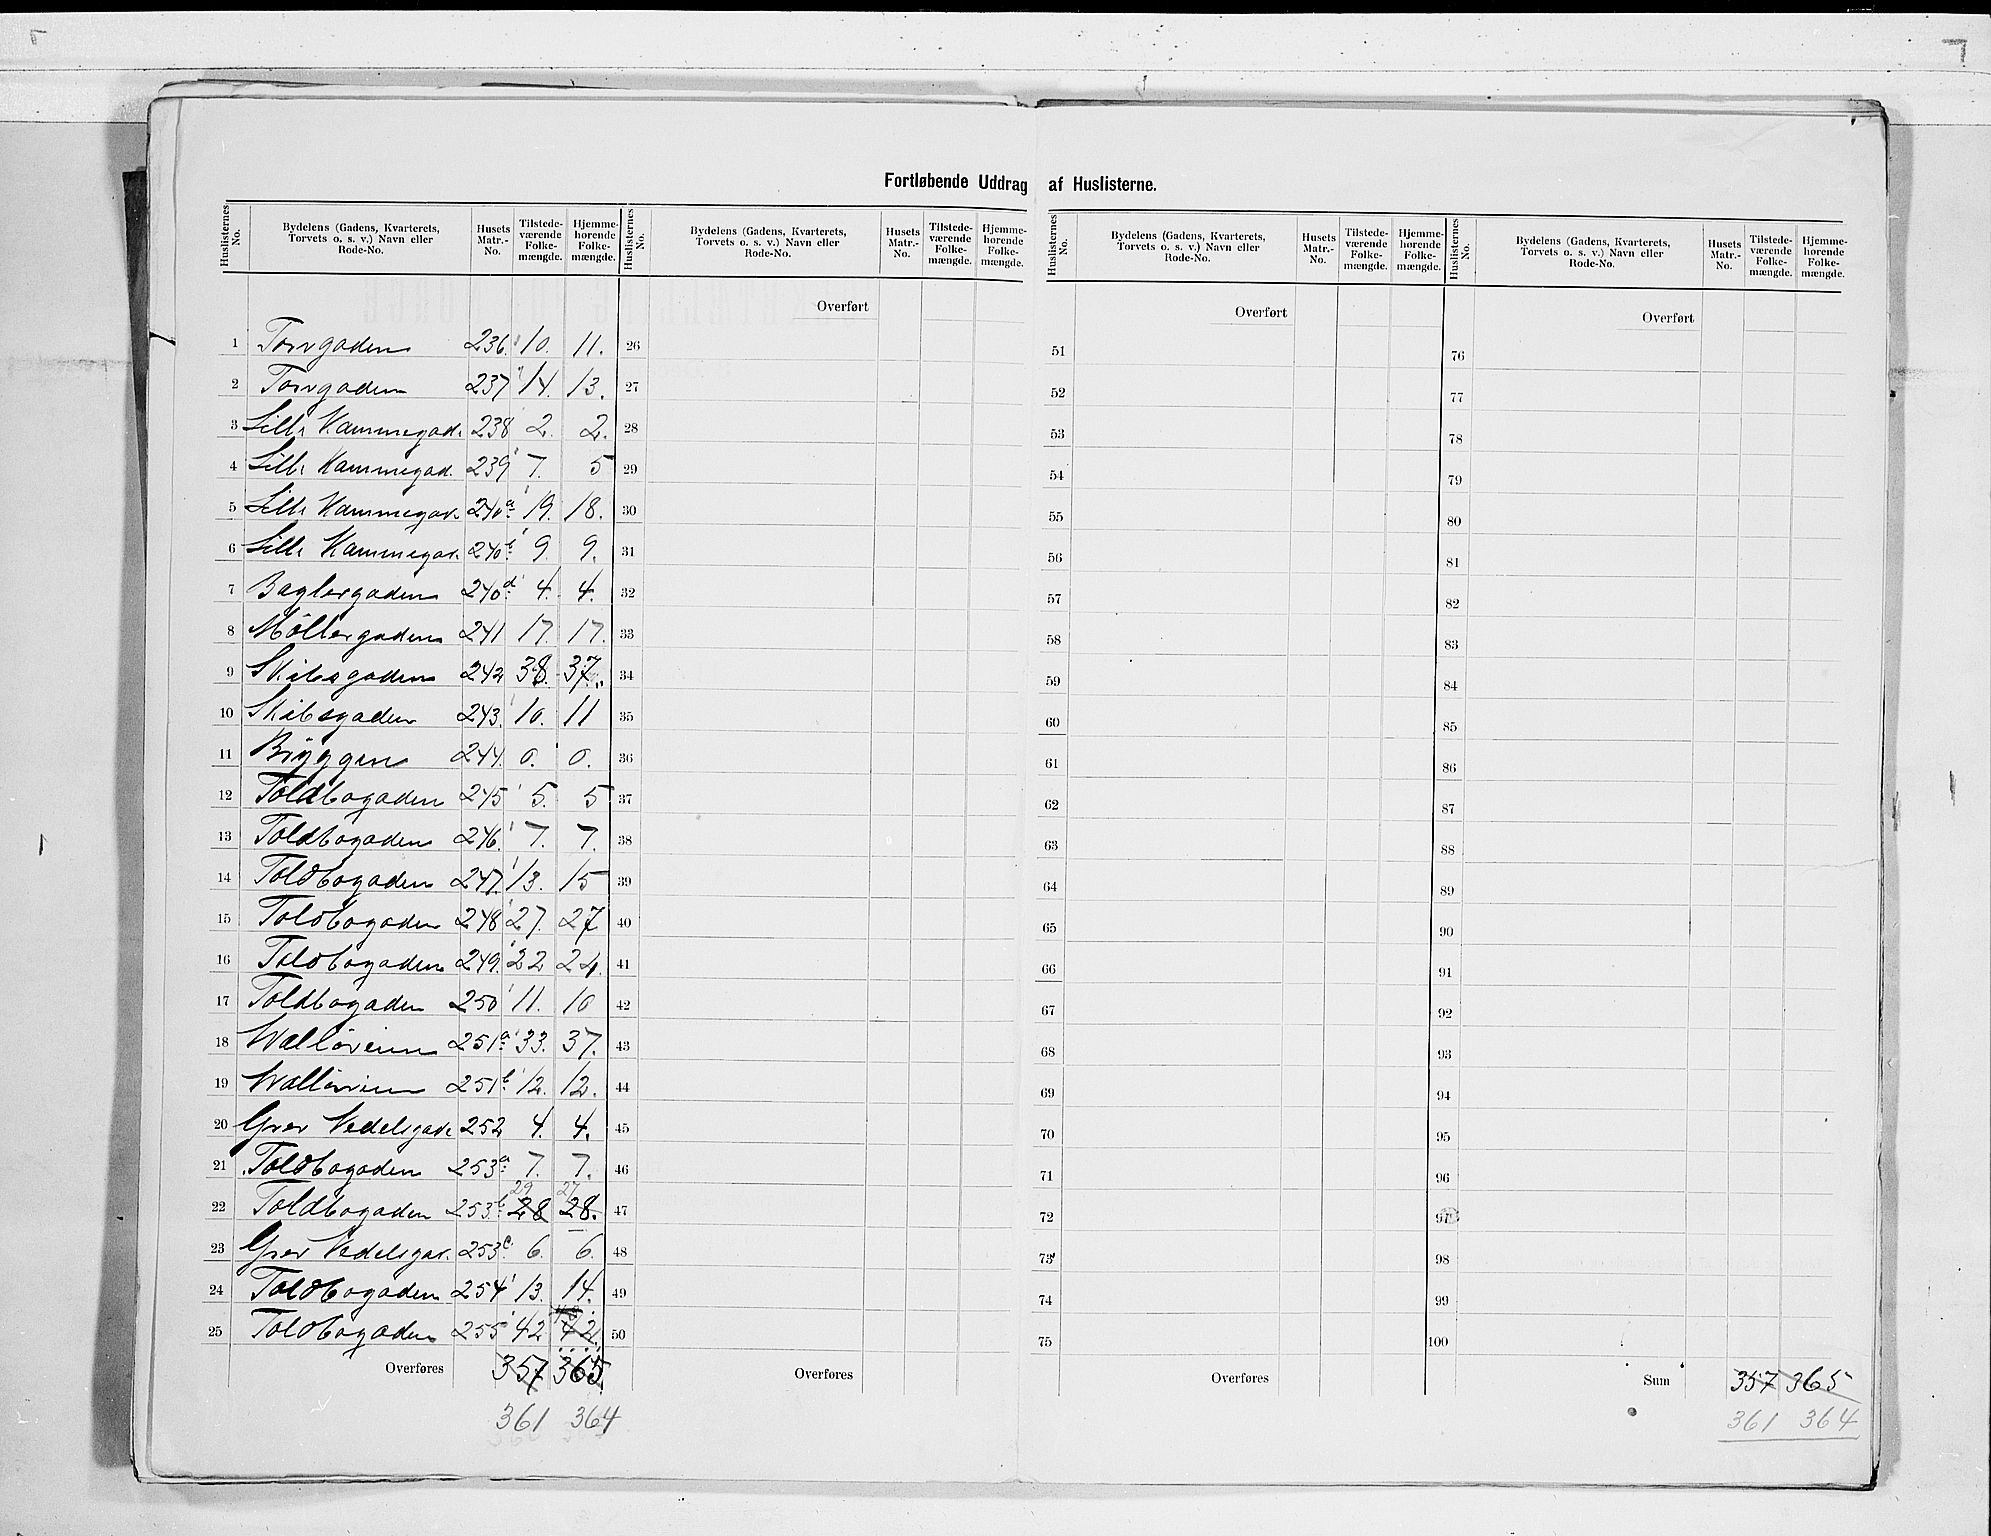 Fortløbende Uddrag af Huslisterne.
Huslisternes No. Bydelens (Gadens, Kvarterets, Torvets o. s. v.) Navn eller Rode-No. Husets Matr.-No. Tilstedeværende Folkemængde. Hjemmehørende Folkemængde. Huslisternes No. Bydelens (Gadens, Kvarterets, Torvets o. s. v.) Navn eller Rode-No. Husets Matr.-No. Tilstedeværende Folkemængde. Hjemmehørende Folkemængde. Huslisternes No. Bydelens (Gadens, Kvarterets, Torvets o. s. v.) Navn eller Rode-No. Husets Matr.-No. Tilstedeværende Folkemængde. Hjemmehørende Folkemængde. Huslisternes No. Bydelens (Gadens, Kvarterets, Torvets o. s. v.) Navn eller Rode-No. Husets Matr.-No. Tilstedeværende Folkemængde. Hjemmehørende Folkemængde.
Overført Overført Overført
1 Torvgaden 236. 10. 11. 26 51 76
2 Torvgaden 237 14. 13. 27 52 77
3 Lille Kammegad. 238 2. 2. 28 53 78
4 Lille Kammegad. 239 7. 5 29 54 79
5 Lille Kammegad. 240a 19. 18. 30 55 80
6 Lille Kammegad. 240b 9. 9. 31 56 81
7 Baglergaden 240d 4. 4. 32 57 82
8 Møllergaden 241 17. 17. 33 58 83
9 Skibsgaden 242 38. 37. 34 59 84
10 Skibsgaden 243. 10. 11 35 60 85
11 Bryggen 244. 0. 0. 36 61 86
12 Toldbogaden 245 5. 5 37 62 87
13 Toldbogaden 246. 7. 7. 38 63 88
14 Toldbogaden 247. 13. 15 39 64 89
15 Toldbogaden 248 27. 27 40 65 90
16 Toldbogaden 249. 22 24. 41 66 91
17 Toldbogaden 250 11. 10 42 67 92
18 Walløveien 251a 33. 37. 43 68 93
19 Walløveien 251b 12. 12. 44 69 94
20 Grev Vedelsgade 252 4. 4. 45 70 95
21 Toldbogaden 253a 7. 7. 46 71 96
29 27
22 Toldbogaden 253b 28 28. 47 72 97
23 Grev Vedelsgad. 253c 6. 6. 48 73 98
24 Toldbogaden 254 13. 14. 49 74 99
25 Toldbogaden 255 42 42. 50 75 100
Overføres 357 365 Overføres Overføres Sum 357 365
361 364 361 364